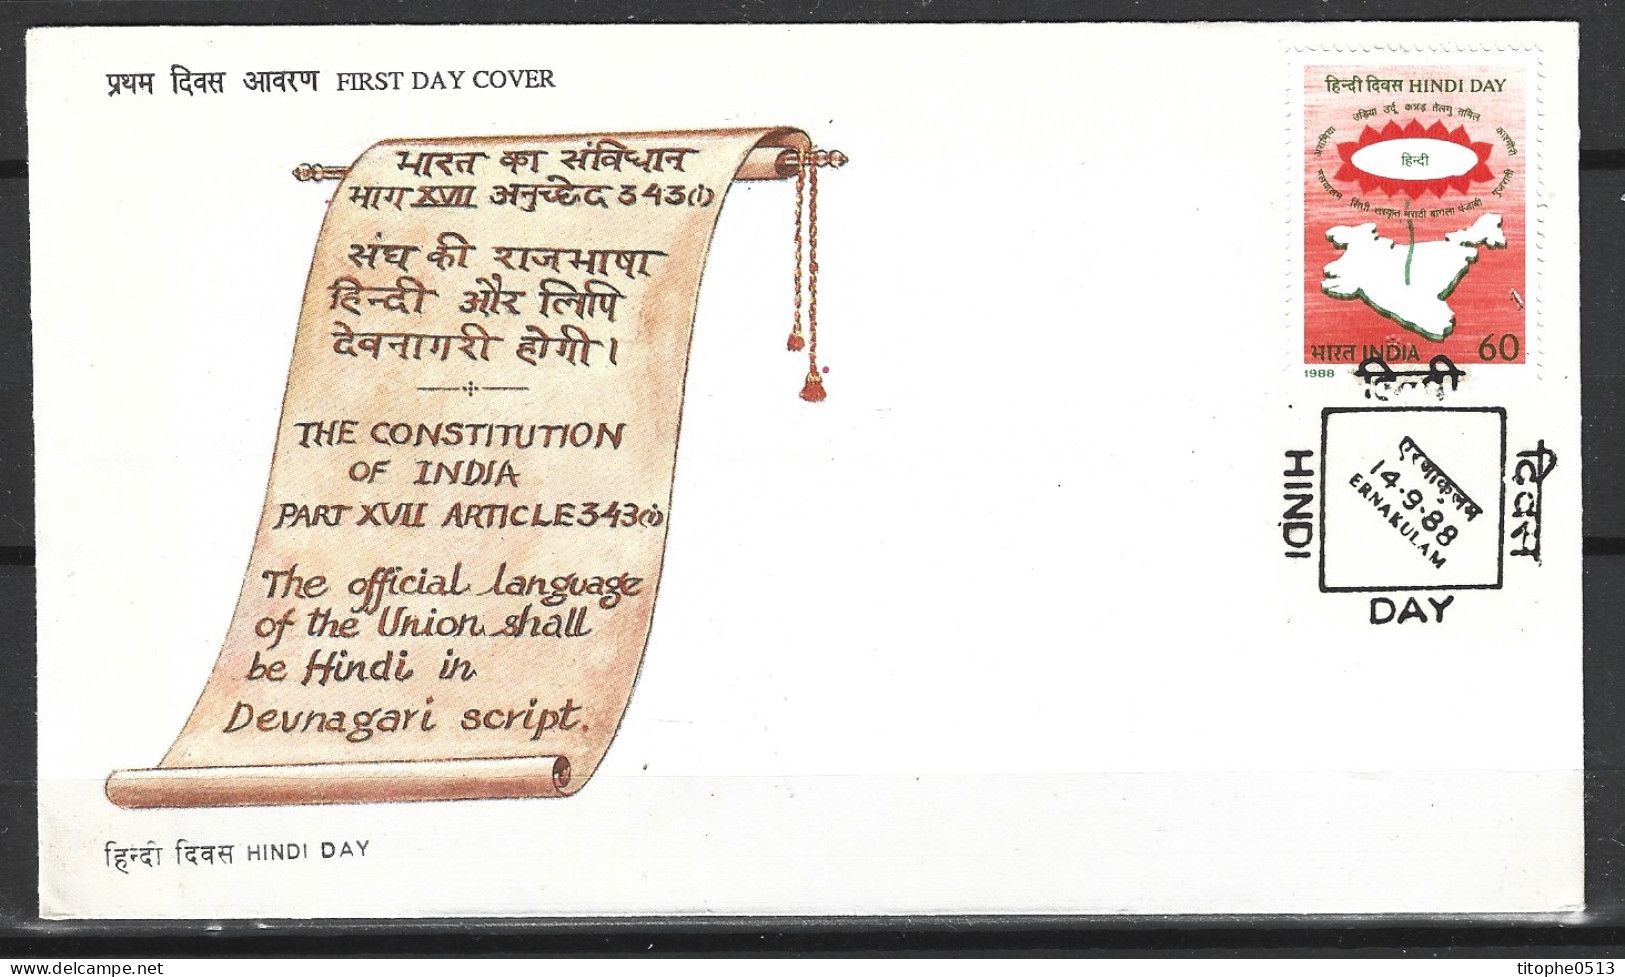 प्रथम दिवस आवरण FIRST DAY COVER
भारत का संविधान
भाग XVII अनुच्छेद 343(1)
संघ की राजभाषा
हिन्दी और लिपि
देवनागरी होगी।
THE CONSTITUTION
OF INDIA
PART XVII ARTICLE 343(1)
The official language
of the Union shall
be Hindi in
Devnagari script.
हिन्दी दिवस HINDI DAY
हिन्दी दिवस HINDI DAY
असमिया उड़िया उर्दू कन्नड़ तेलगु तमिल कश्मीरी
हिन्दी
मलयालम सिंधी संस्कृत मराठी बांगला पंजाबी गुजराती
भारत INDIA 60
1988
हिन्दी
दिवस
HINDI
एरणाकुलम
14.9.88
ERNAKULAM
DAY
titophe0513